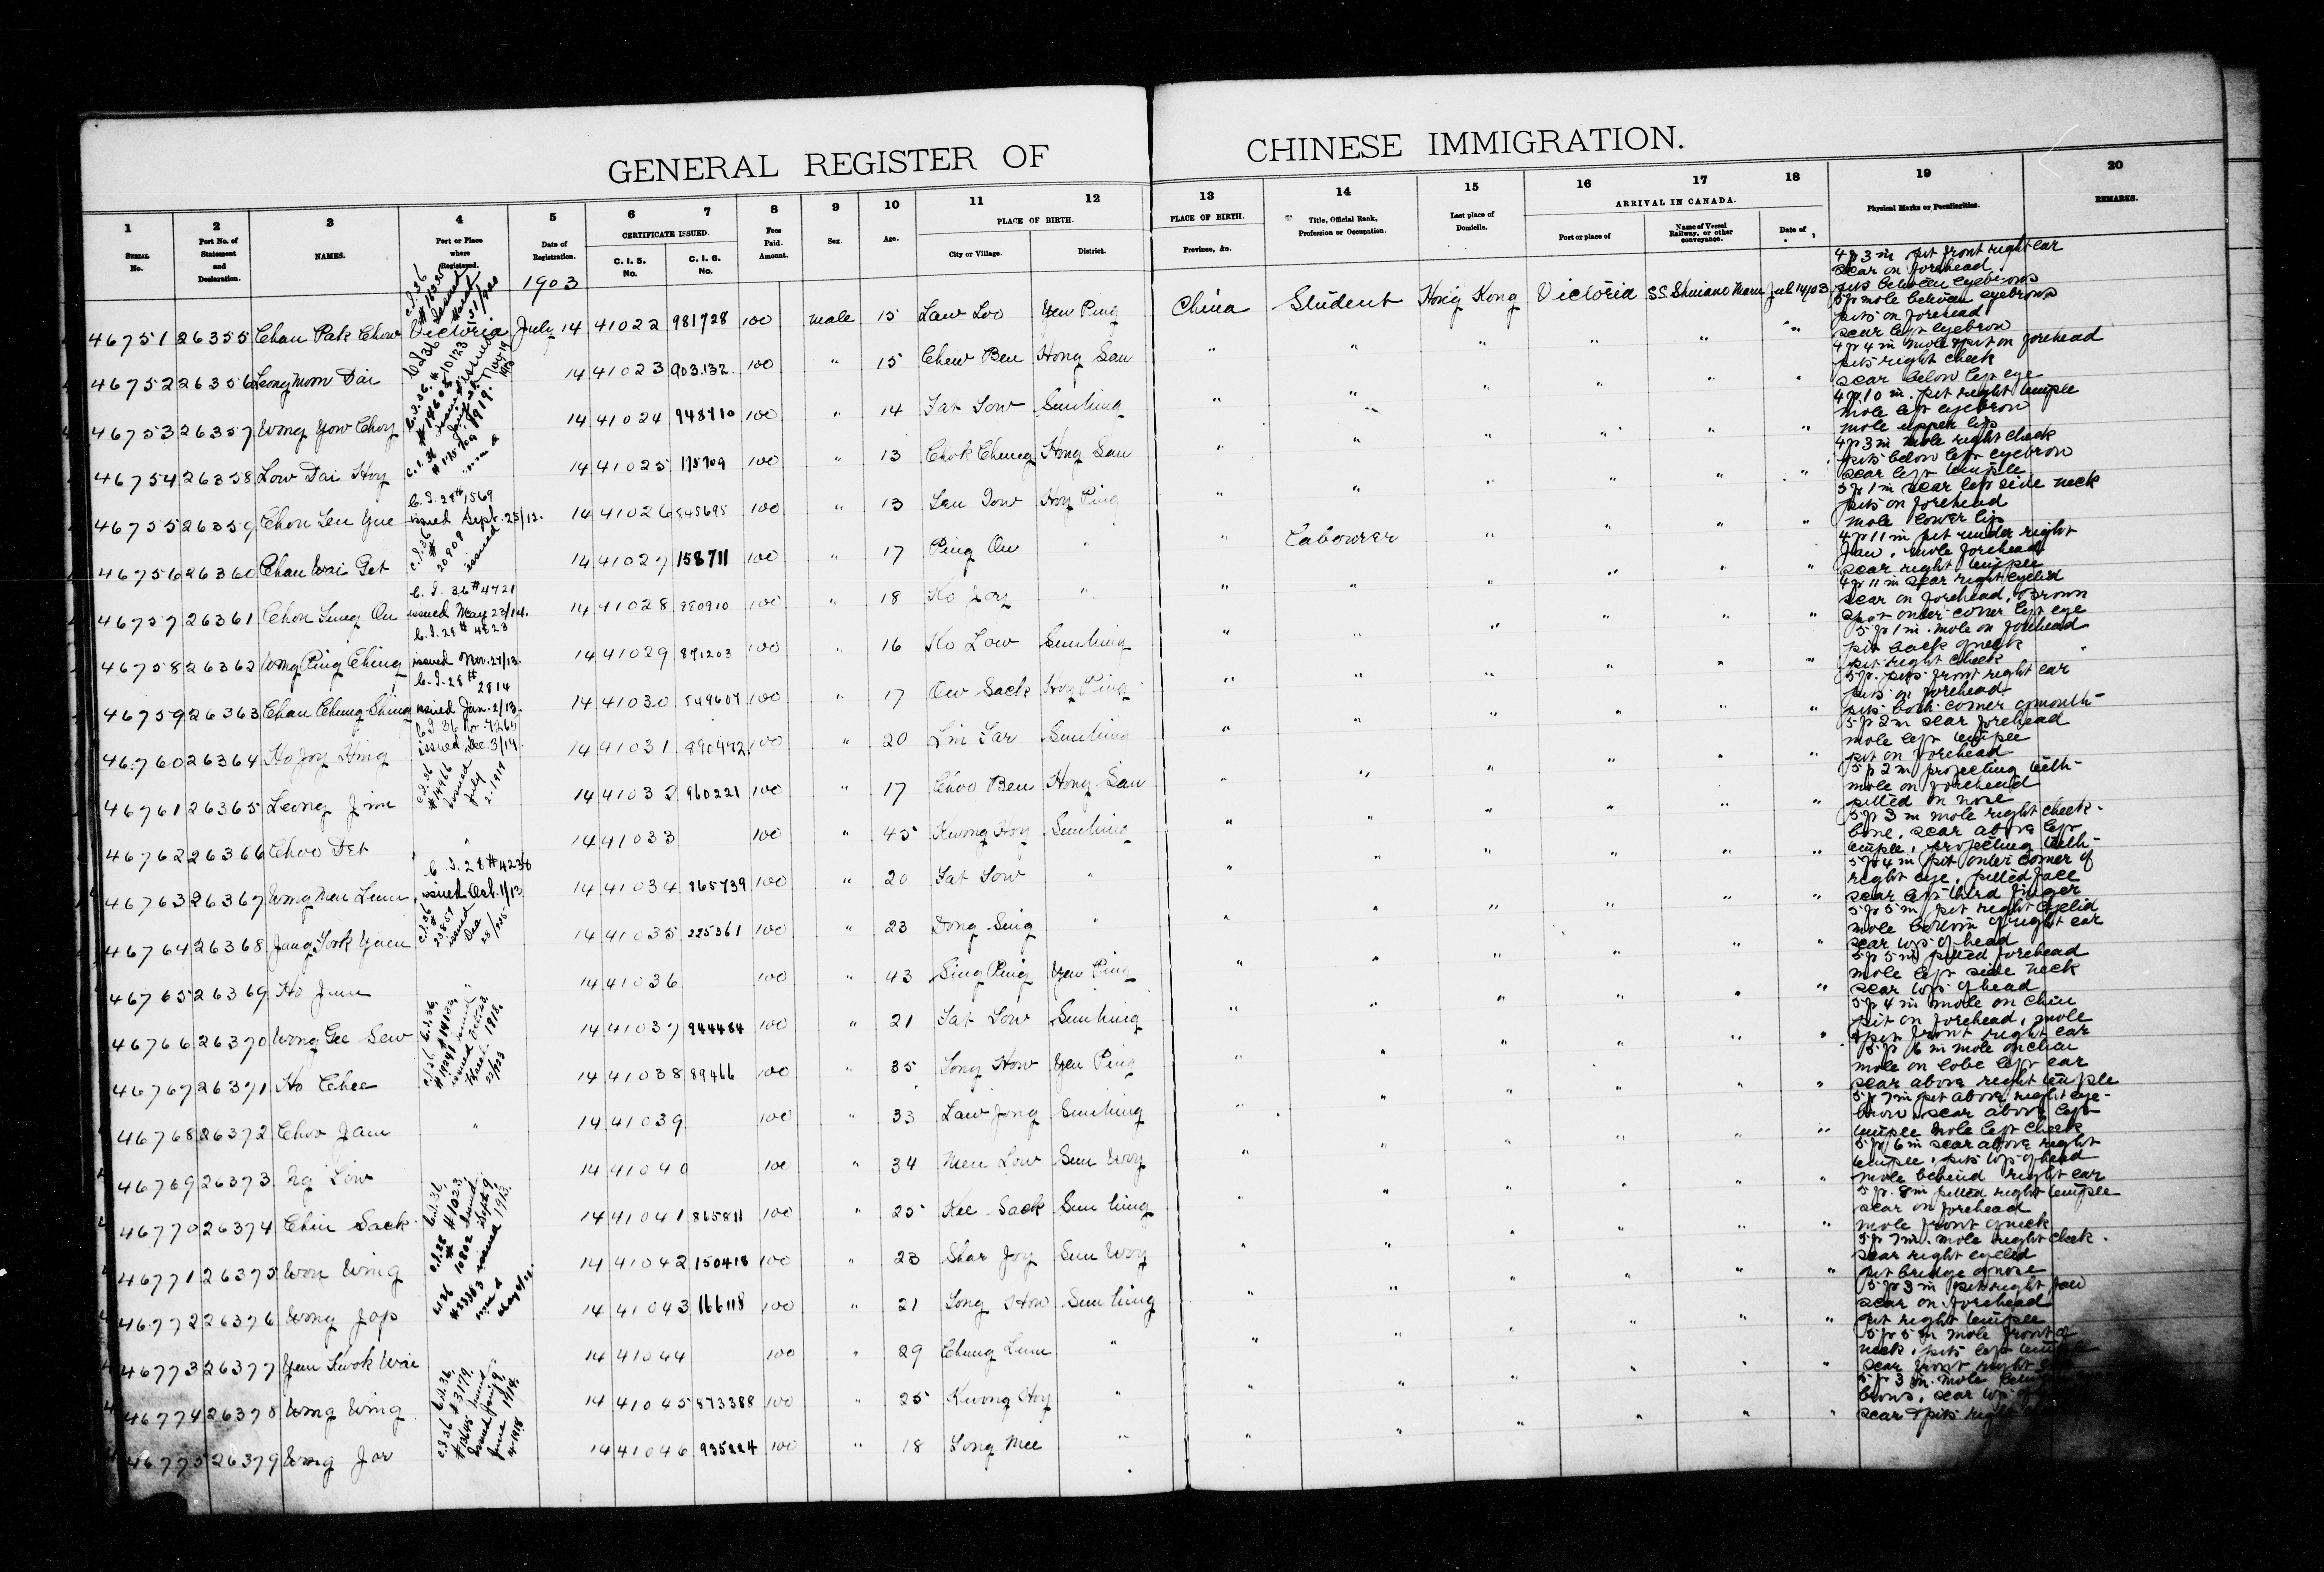 GENERAL REGISTER OF CHINESE IMMIGRATION.
1 2 3 4 5 6 7 8 9 10 11 12 13 14 15 16 17 18 19 20
SERIAL No. Port No. of Statement and Declaration. NAMES. Port or Place where Registered. Date of Registration. CERTIFICATE ISSUED. C. I. 5. No. C. I. 6. No. Fees Paid. Amount. Sex. Age. PLACE OF BIRTH. City or Village. District. PLACE OF BIRTH. Province, &c. Title, Official Rank, Profession or Occupation. Last place of Domicile. ARRIVAL IN CANADA. Port or place of Name of Vessel Railway, or other conveyance. Date of Physical Marks or Peculiarities. REMARKS.
1903
46751 26355 Chan Pak Chow Victoria July 14 41022 981728 100 male 15 Law Loo Yen Ping China Student Hong Kong Victoria S.S. Maru Jul 14/03 4 f 3 in pit front right ear scar on forehead pits between eyebrows
46752 26356 Leong Mom Dai 14 41023 903132 100 " 15 Chew Ben Hong San " " " " " " 5 f mole between eyebrows pits on forehead scar left eyebrow
46753 26357 Wong Yow Choy 14 41024 948710 100 " 14 Tat Low Sunhing " " " " " " 4 f 4 in mole & pit on forehead pits right cheek scar below left eye
46754 26358 Low Dai Hoy 14 41025 175709 100 " 13 Chok Cheung Hong San " " " " " " 4 f 10 in. pit right temple mole left eyebrow mole upper lip
46755 26359 Chon Len Yue C.I. 28 # 1569 issued Sept. 25/12. 14 41026 845695 100 " 13 Len Dow Hoy Ping " " " " " " 4 f 3 in mole right cheek pits below left eyebrow scar left temple
46756 26360 Chan Wai Get C.I. 36 # 20909 issued 14 41027 158711 100 " 17 Ping On " " Labourer " " " " 5 f 1 in scar left side neck pits on forehead mole lower lip
46757 26361 Chon Sung On C. I. 36 # 4721 issued May 23/14. 14 41028 880910 100 " 18 Ho Joy " " " " " " " 4 f 11 in pit under right jaw, mole forehead scar right temple
46758 26362 Wong Ping Ching C.I. 28 # 4823 issued Nov. 24/13. 14 41029 871203 100 " 16 Ho Low Sunhing " " " " " " 4 f 11 in scar right eyelid scar on forehead, brown spot outer corner left eye
46759 26363 Chan Chung Shing C.I. 28 # 2814 issued Jan. 2/13. 14 41030 849607 100 " 17 Ow Sack Hoy Ping " " " " " " 5 f 1 in. mole on forehead pit back of neck pit right cheek
46760 26364 Ho Joy Hing C I 36 No. 7265 issued Dec. 3/14. 14 41031 890472 100 " 20 Lin Tar Sunhing " " " " " " 5 f. pits front right ear pits on forehead pits both corner of mouth
46761 26365 Leong Jim C.I. 36 # 14966 issued July 2. 1919 14 41032 960221 100 " 17 Choo Ben Hong San " " " " " " 5 f 2 in scar forehead mole left temple pit on forehead
46762 26366 Choo Det " 14 41033 100 " 45 Kwong Hoy Sunhing " " " " " " 5 f 2 in projecting teeth mole on forehead pitted on nose
46763 26367 Wong Men Leun C. I. 28 # 4236 issued Oct. 1/13 14 41034 865739 100 " 20 Tat Low " " " " " " " 5 f 3 in mole right cheek bone, scar above left temple, projecting teeth
46764 26368 Jang Sook Yuen C.I. 36 # 23857 issued Dec 23/25 14 41035 225361 100 " 23 Dong Sing " " " " " " " 5 f 4 in pit outer corner of right eye, pitted face scar left third finger
46765 26369 Ho Jum " 14 41036 100 " 43 Sing Ping Yen Ping " " " " " " 5 f 5 in pit right eyelid mole bottom of right ear scar top of head
46766 26370 Wong Gee Sew 14 41037 944484 100 " 21 Tat Low Sunhing " " " " " " 5 f 5 in pitted forehead mole left side neck scar top of head
46767 26371 Ho Chee 14 41038 89466 100 " 35 Long How Yen Ping " " " " " " 5 f 4 in mole on chin pit on forehead, mole & pit front right ear
46768 26372 Choo Jam " 14 41039 100 " 33 Law Jong Sunhing " " " " " " 5 f 6 in mole on chin mole on lobe left ear scar above right temple
46769 26373 Ng Low 14 41040 100 " 34 Men Low Sun Woy " " " " " " 5 f 7 in pit above right eyebrow scar above left temple mole left cheek
46770 26374 Chin Sack 14 41041 865811 100 " 25 Kee Sack Sun hing " " " " " " 5 f 6 in scar above right temple, pits top of head mole behind right ear
46771 26375 Won Wing 14 41042 150418 100 " 23 Shar Joy Sun Woy " " " " " " 5 f. 8 in pitted right temple scar on forehead mole front of neck
46772 26376 Wong Jop 14 41043 166118 100 " 21 Long How Sun hing " " " " " " 5 f 7 in. mole right cheek. scar right eyelid pit bridge of nose
46773 26377 Yun Kwok Wai " 14 41044 100 " 29 Chung Lum " " " " " " " 5 f 3 in pit right jaw scar on forehead pit right temple
46774 26378 Wong Wing 14 41045 873388 100 " 25 Kwong Hoy " " " " " " " 5 f 5 in mole front of neck, pits left temple scar front right
46775 26379 Wong Jar 14 41046 935224 100 " 18 Long Mee " " " " " " " 5 f 3 in. mole between eye brows, scar top of scar & pits right